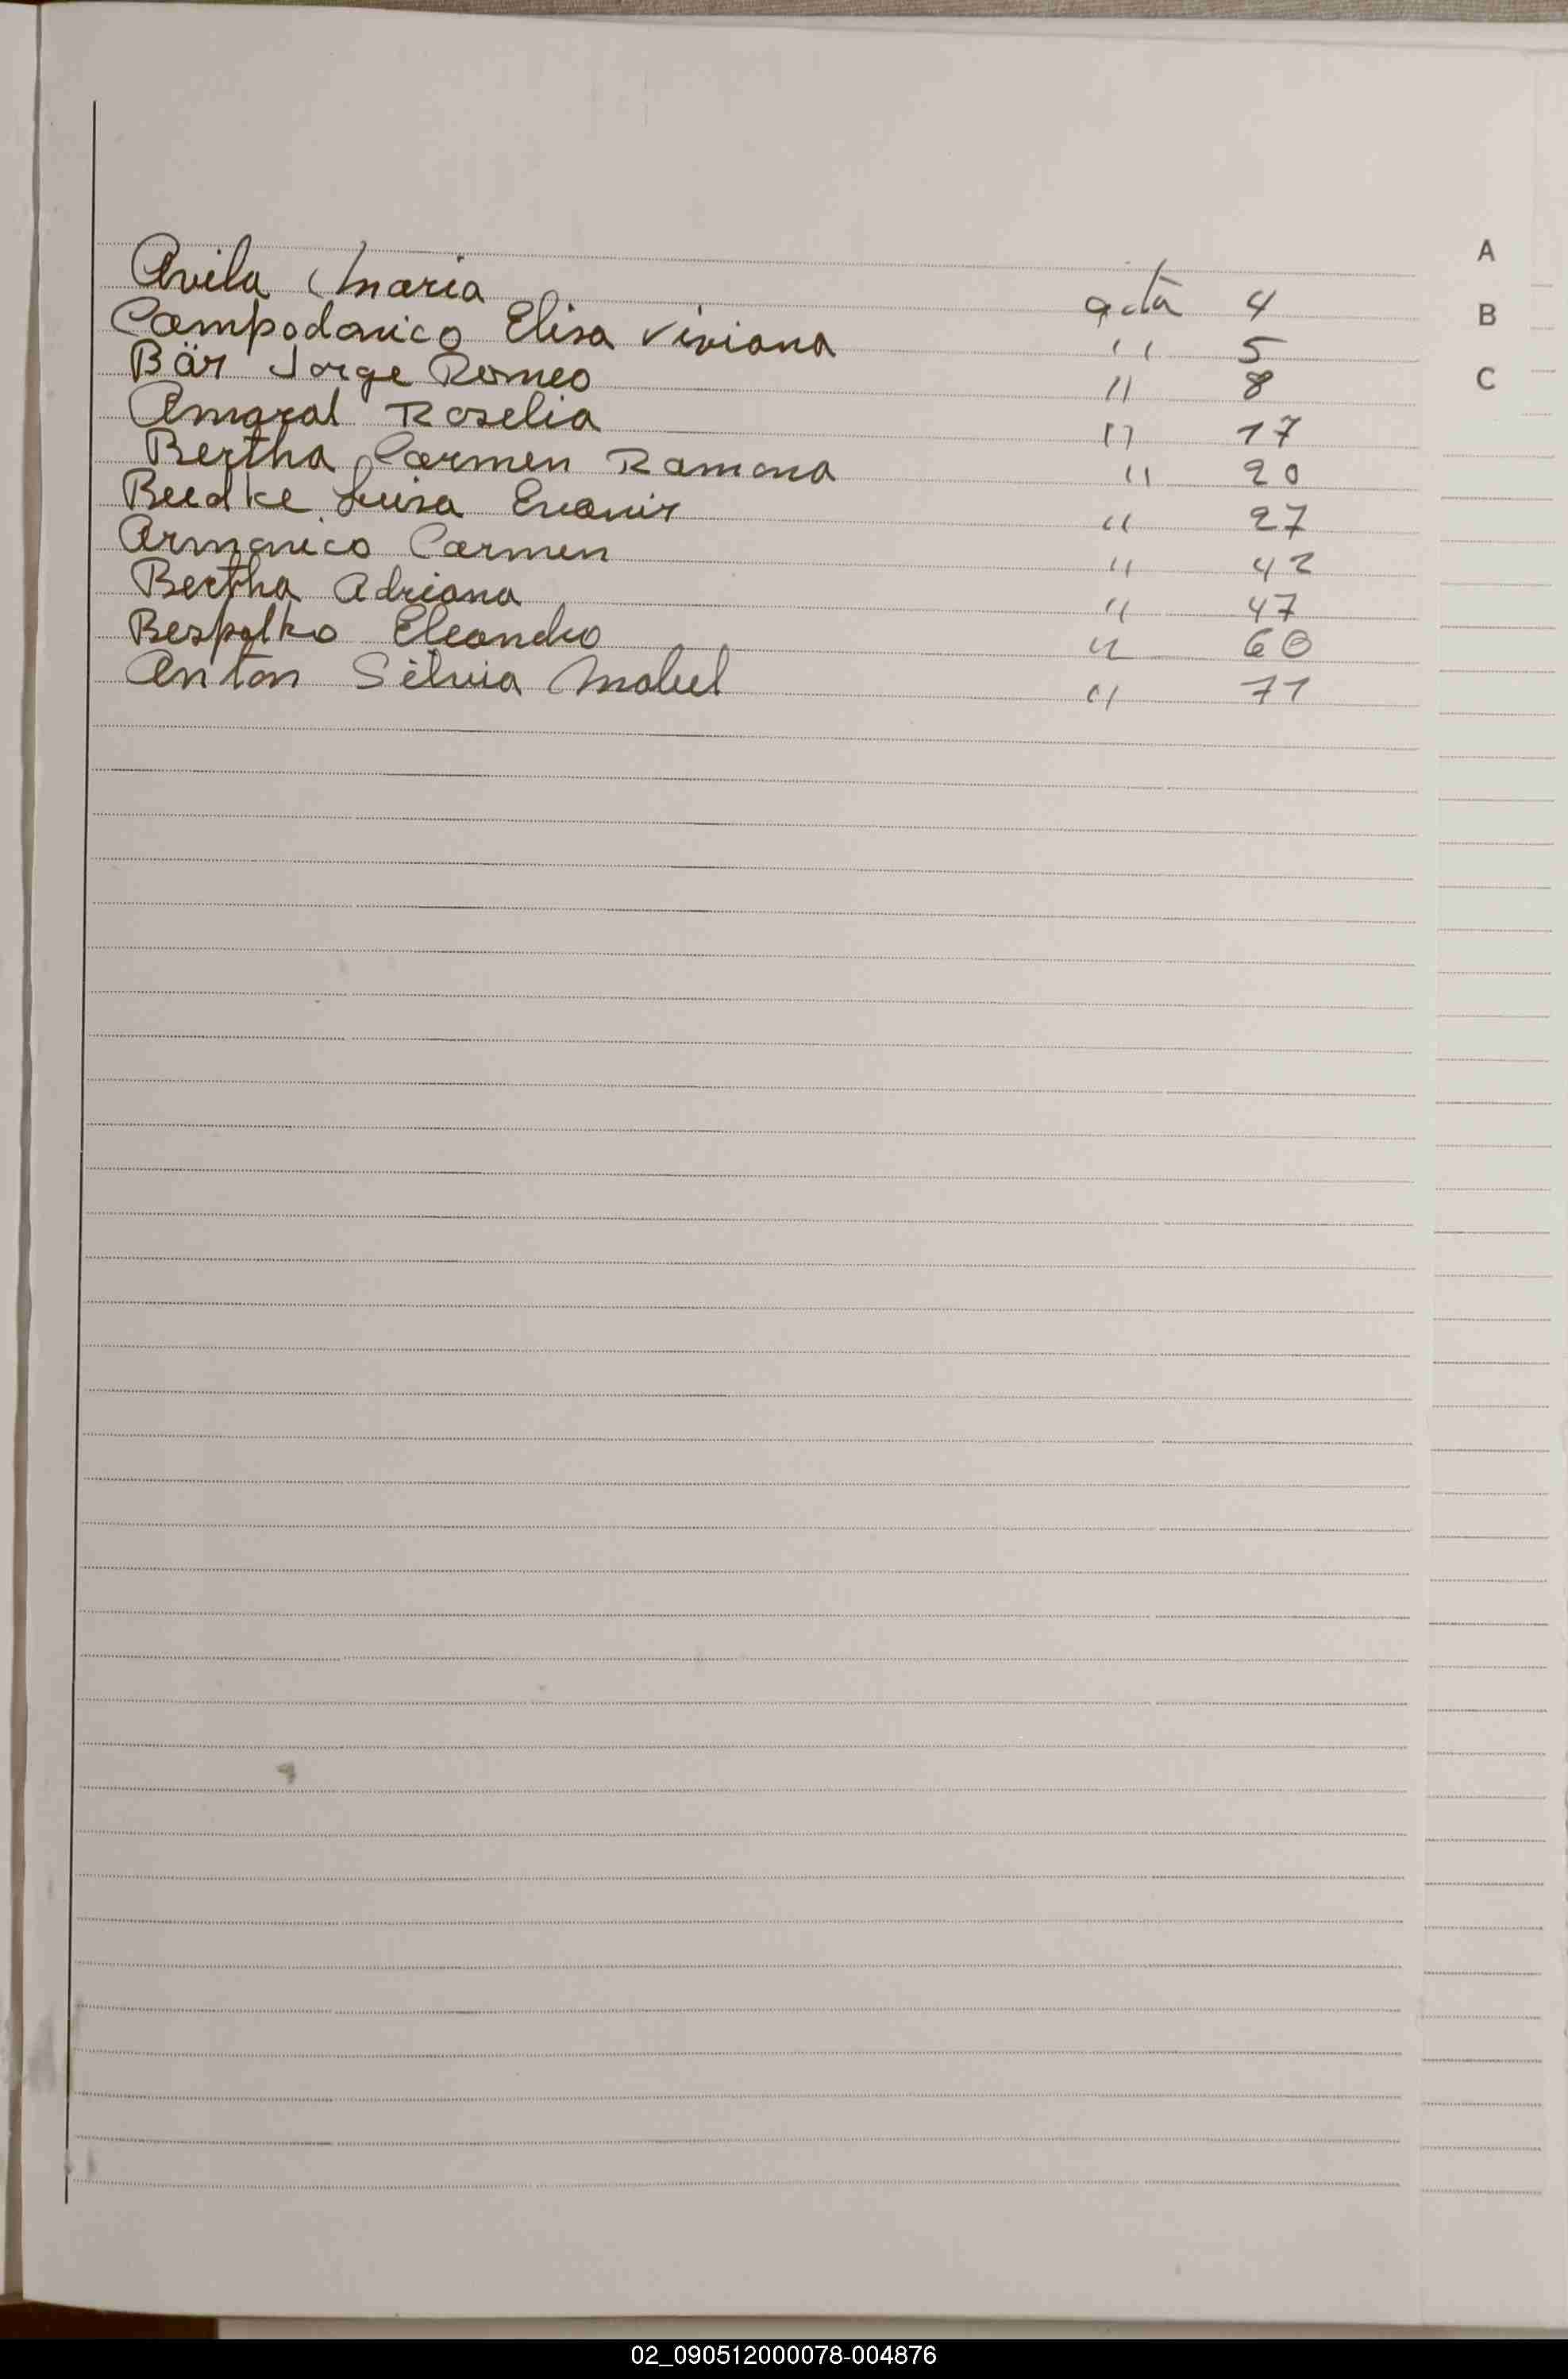 Avila Maria acta 4 A
Campodonico Elisa Viviana " 5 B
Bär Jorge Romeo " 8 C
Amaral Roselia " 17
Bertha Carmen Ramona " 20
Beedke Luisa Evanir " 27
Armonico Carmen " 42
Bertha Adriana " 47
Bespalko Eleandro " 60
Anton Silvia Mabel " 71
02_090512000078-004876